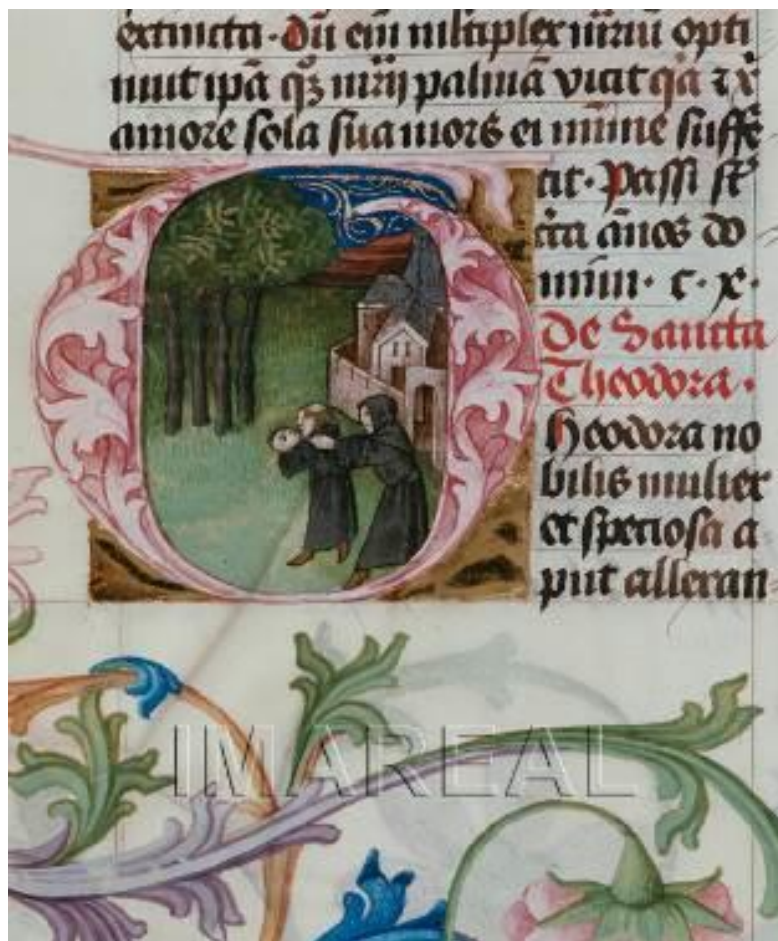 extincta · dū eīm mltiplex mr̄iū opti
nuit ipā qz mr̄ij palmā vicit qa z xᵖ
amore sola sua mors ei mīme suffe
cit · Passi st̄
cͥca ānos do
mini · c · x ·
De Sancta
Theodora ·
heodora no
bilis mulier
et speciosa a
put allexan
IMAREAL